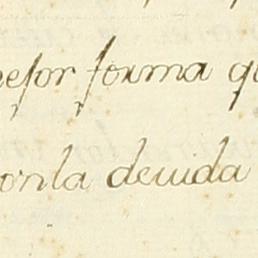 efor forma q
onla deuida